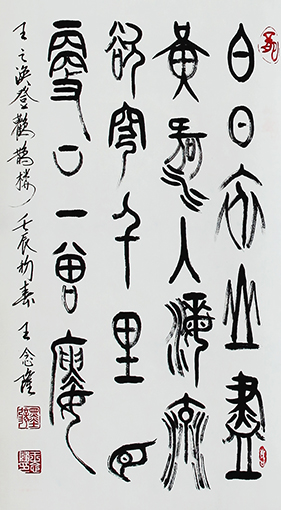 白日依山盡
黃河入海流
欲窮千里目
更上一層樓
王之渙登鸛鵲樓 壬辰 春 王念隆